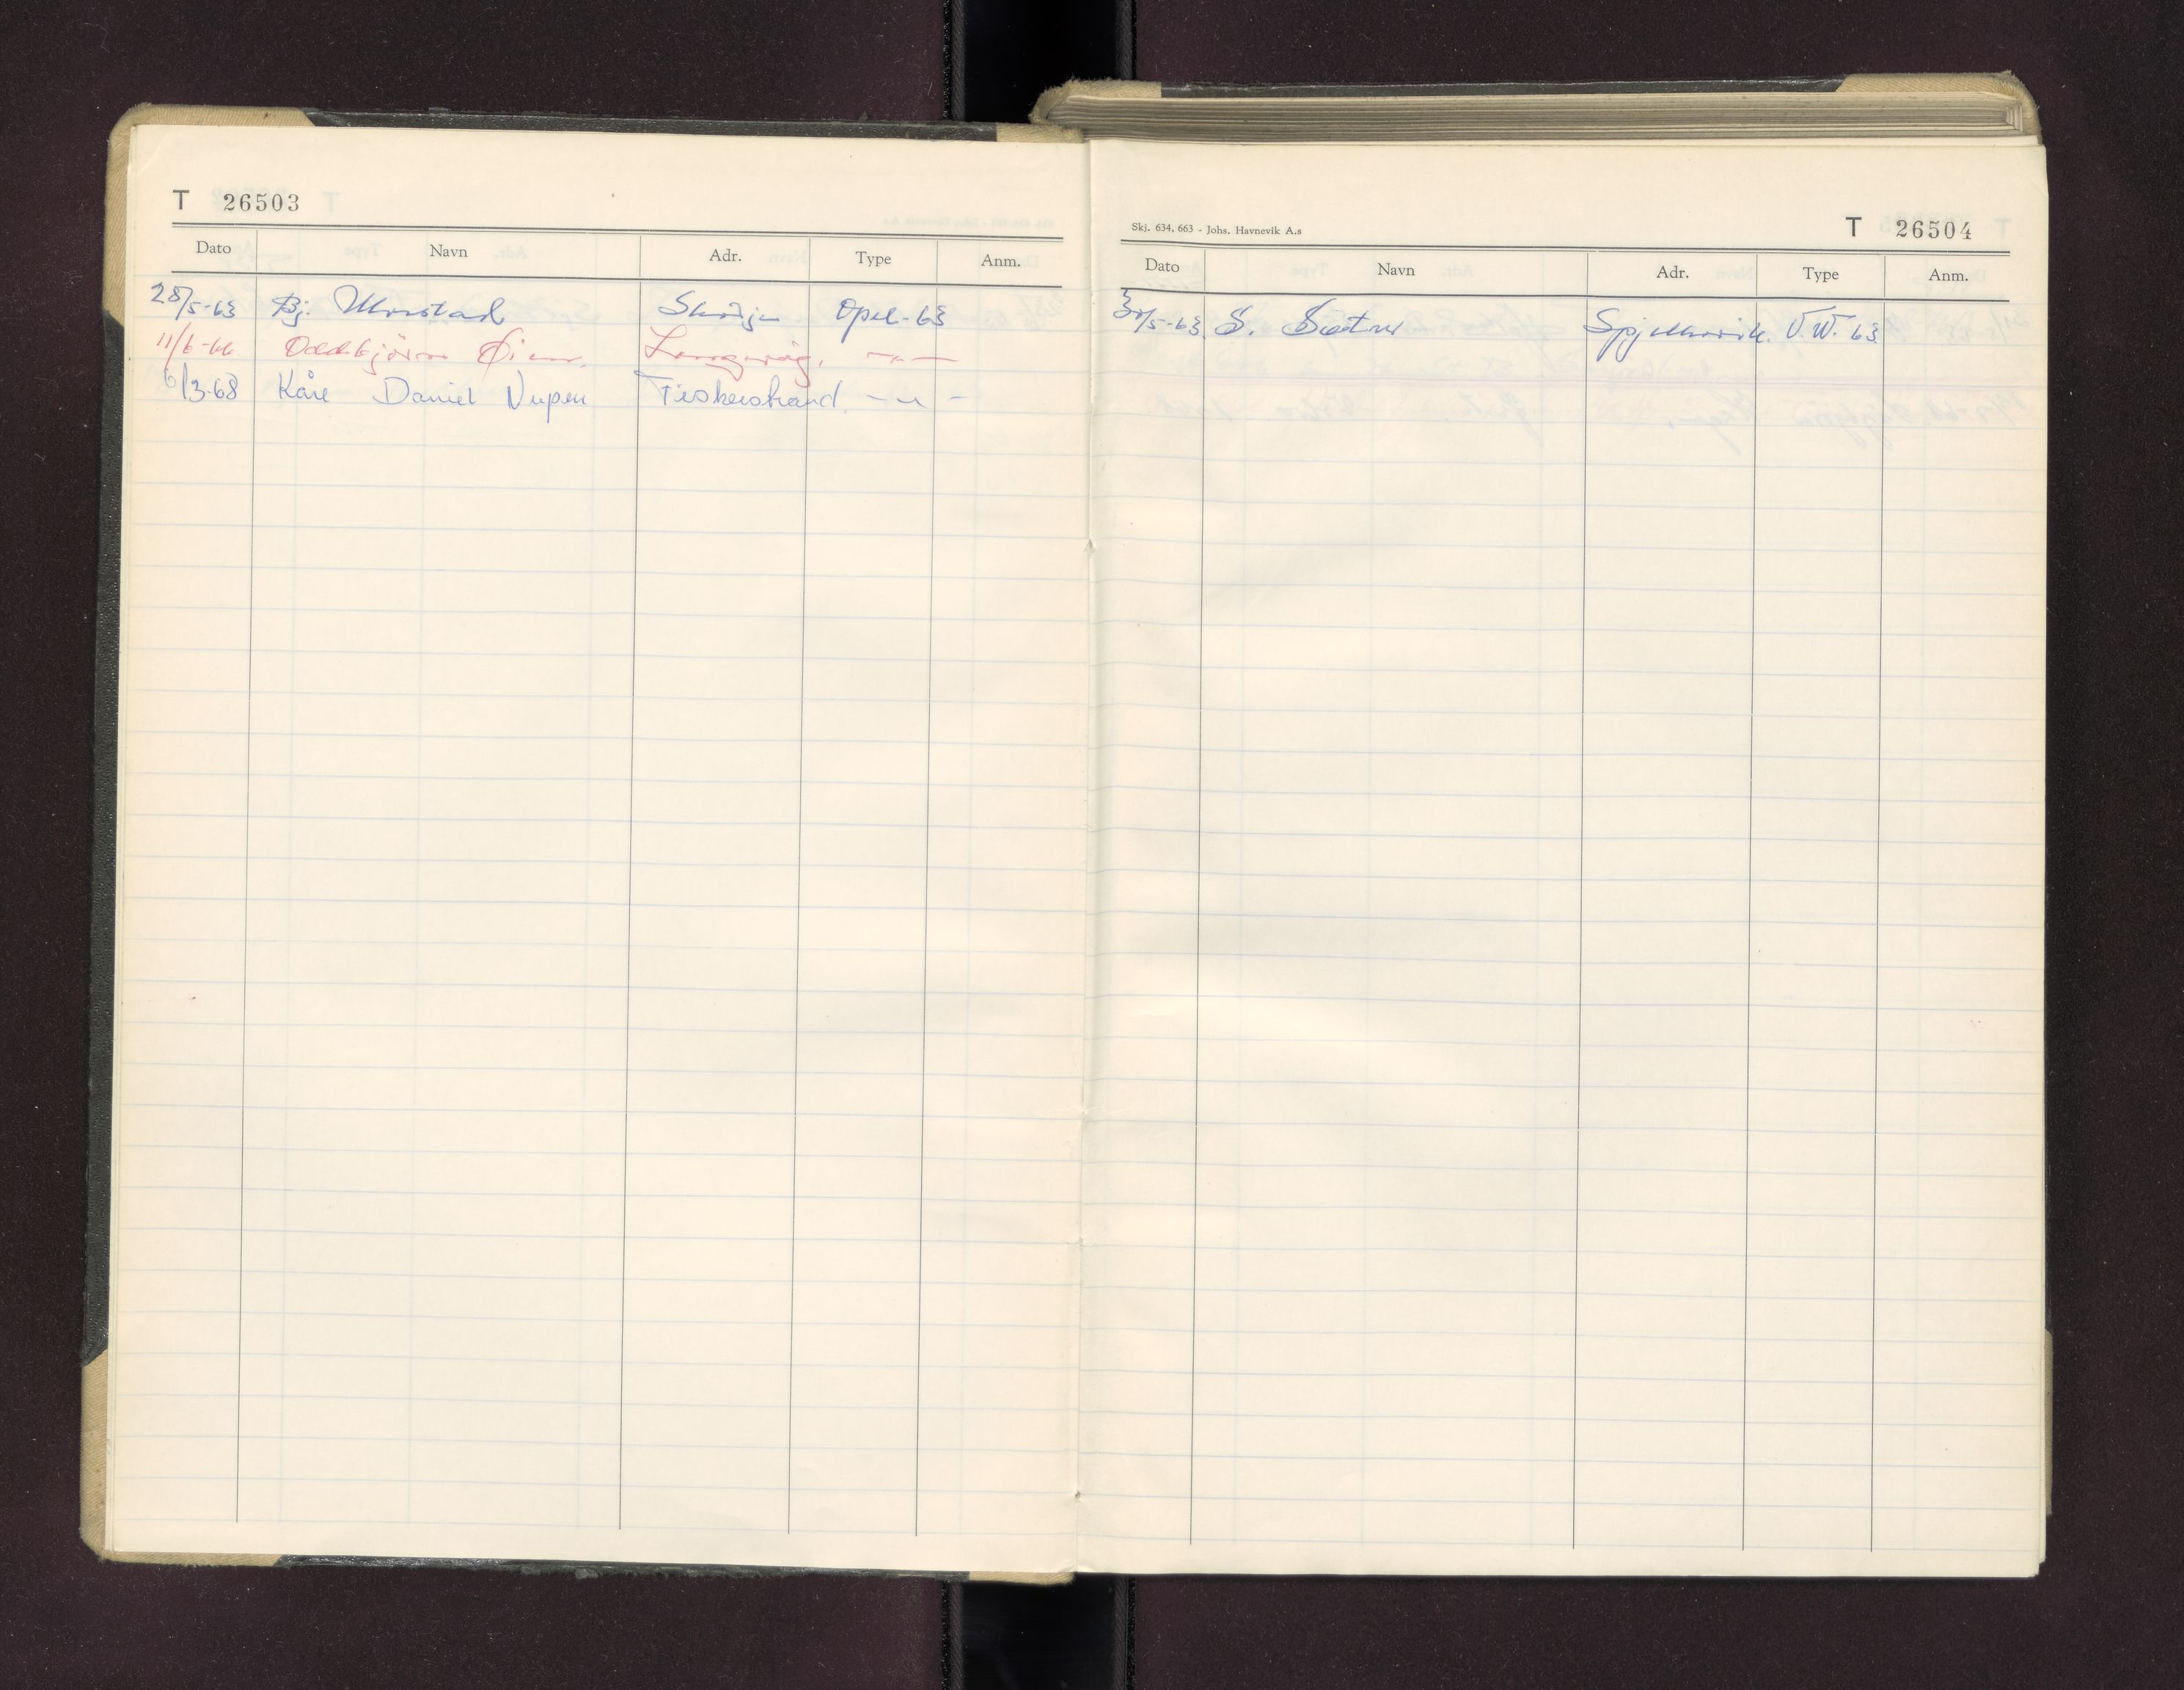 T 26503
Dato Navn Adr. Type Anm.
28/5-63 Bj. Unstad Skodje Opel-63
11/6-66 Oddbjörn Langevåg. -"-
6/3-68 Kåre Daniel Nupen Fiskerstrand -"-
Skj. 634, 663 - Johs. Havnevik A.s T 26504
Dato Navn Adr. Type Anm.
30/5-63 S. Spjelkavik. V.W. 63